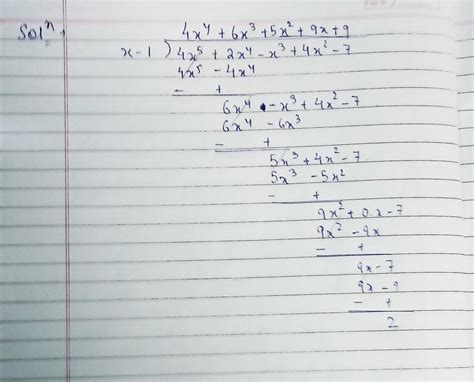 Solⁿ.
4x⁴ + 6x³ + 5x² + 9x + 9
x - 1 ) 4x⁵ + 2x⁴ - x³ + 4x² - 7
4x⁵ - 4x⁴
- +
6x⁴ - x³ + 4x² - 7
6x⁴ - 6x³
- +
5x³ + 4x² - 7
5x³ - 5x²
- +
9x² + 0.x - 7
9x² - 9x
- +
9x - 7
9x - 9
- +
2